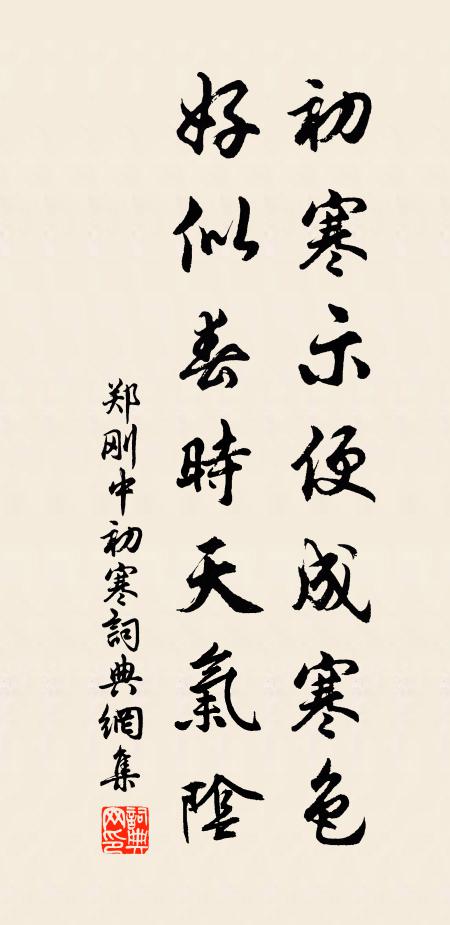 初寒示便成寒色
好似春時天氣陰
郑刚中初寒詞典網集
詞典網印